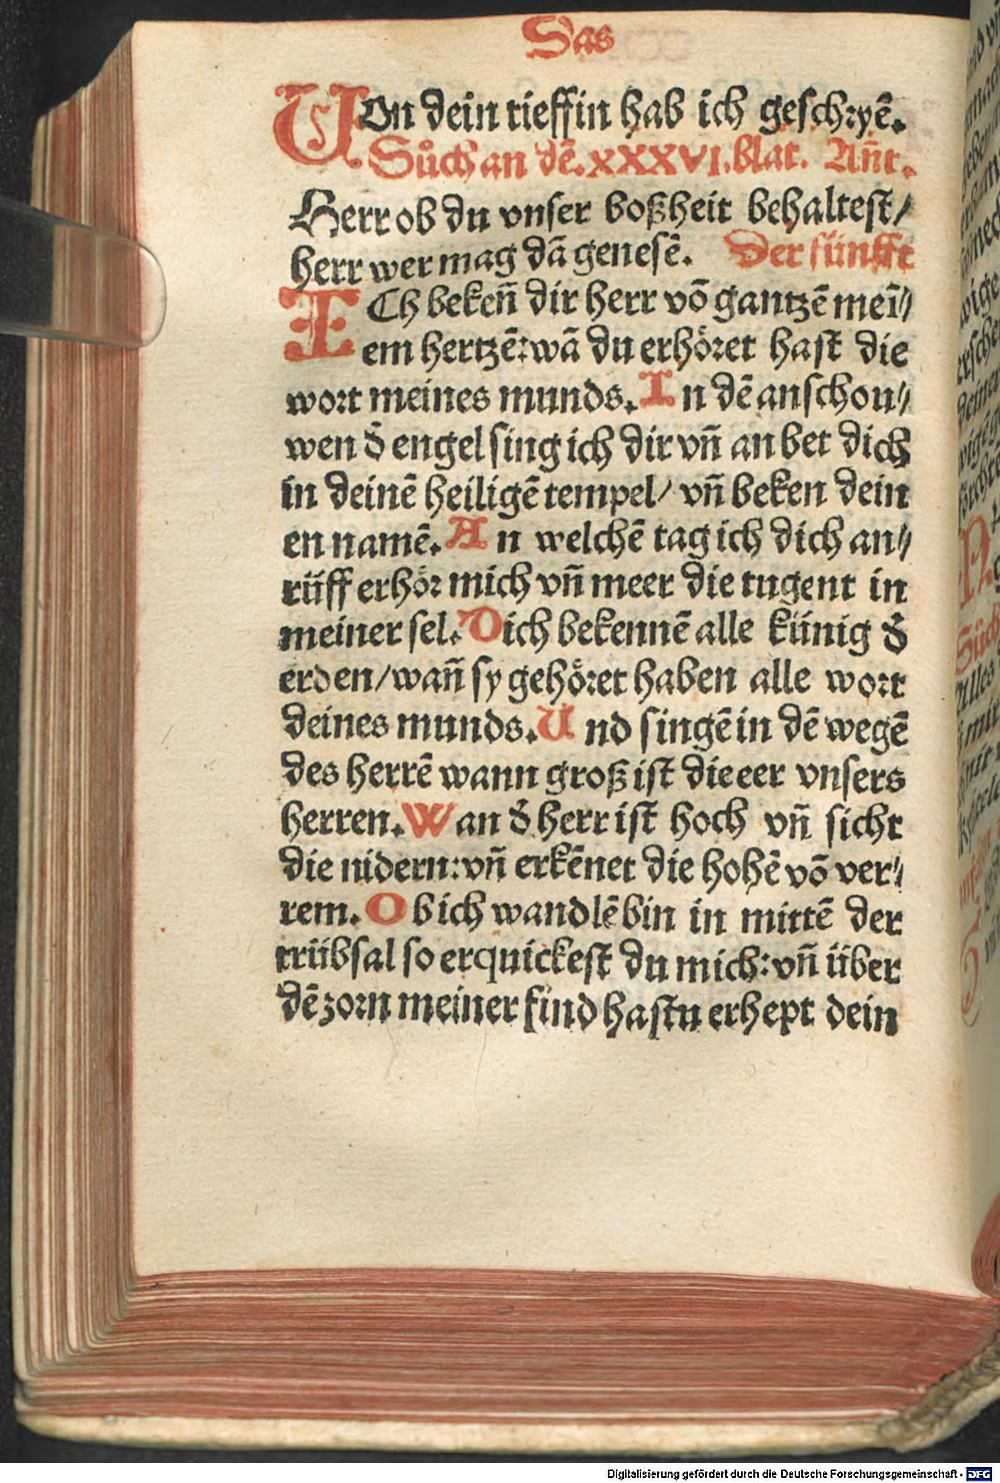 Das
VOn dein tieffin hab ich geschꝛyē.
Sůch an dē.xXXXVI.blat. Añt.
Herr ob du vnser boßheit behaltest/
herr wer mag dā genesē. Der fünfft
ICh bekeñ dir herr vō gantzē mei̅//
em hertzē:wā du erhöꝛet hast die
woꝛt meines munds. In dē anschou//
wen ð engel sing ich dir vñ an bet dich
in deinē heiligē tempel/ vñ beken dein
en namē. An welchē tag ich dich an//
rüff erhöꝛ mich vñ meer die tugent in
meiner sel. Dich bekennē alle künig ð
erden/wañ sy gehöꝛet haben alle woꝛt
deines munds. Vnd singē in dē wegē
des herrē wann groß ist die eer vnsers
herren. Wan ð herr ist hoch vñ sicht
die nidern:vñ erkēnet die hohē vō ver//
rem. Ob ich wandlē bin in mittē der
trübsal so erquickest du mich:vñ über
dē zoꝛn meiner find hastu erhept dein
Digitalisierung gefördert durch die Deutsche Forschungsgemeinschaft - DFG